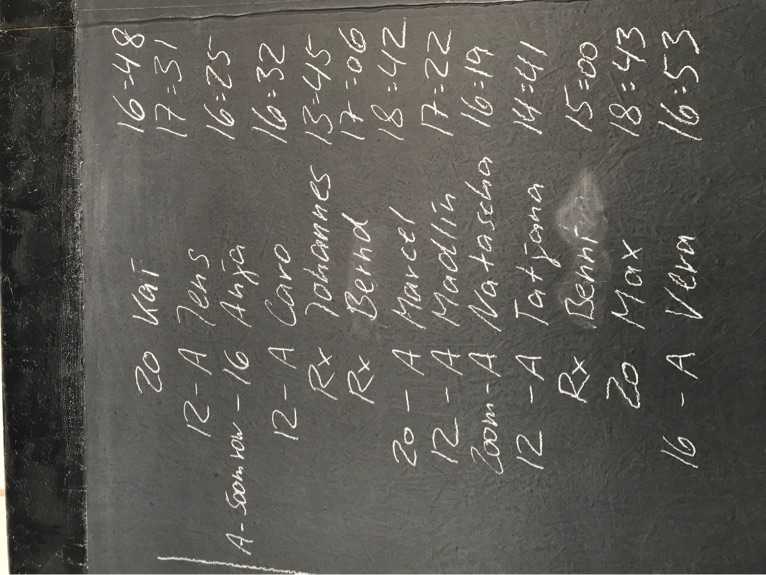 20 Kai 16:48
12 - A Jens 17:31
A-500m row - 16 Anja 16:25
12 - A Caro 16:32
Rx Johannes 13:45
Rx Bernd 17:06
20 - A Marcel 18:42
12 - A Madlin 17:22
200m - A Natascha 16:19
12 - A Tatjana 14:41
Rx 15:00
20 Max 18:43
16 - A Vera 16:53